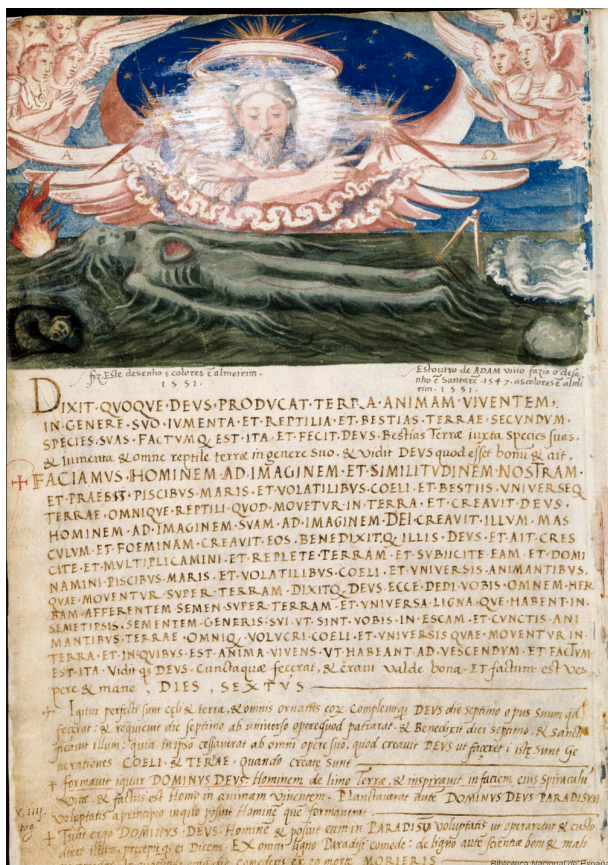 A Ω
fiz Este desenho e colores ẽ almeirim.
1551.
Estoutro de ADAM vivo fazia o dese
nho ẽ Santarẽ 1547. as colores ẽ almei
rim. 1551.
DIXIT·QUOQVE·DEVS·PRODVCAT·TERRA·ANIMAM·VIVENTEM·
IN·GENERE·SVO·IVMENTA·ET·REPTILIA·ET·BESTIAS·TERRAE·SECVNDVM·
SPECIES·SVAS·FACTVMQ·EST·ITA·ET·FECIT·DEVS·Bestias Terræ iuxta Species suas,
& iumenta & omne reptile terræ in genere suo. & vidit DEVS quod esset bonũ & ait,
FACIAMVS·HOMINEM·AD·IMAGINEM·ET·SIMILITVDINEM·NOSTRAM·
ET·PRAESIT·PISCIBVS·MARIS·ET·VOLATILIBVS·COELI·ET·BESTIIS·VNIVERSEQ
TERRAE·OMNIQVE·REPTILI·QVOD·MOVETVR·IN·TERRA·ET·CREAVIT·DEVS·
HOMINEM·AD·IMAGINEM·SVAM·AD·IMAGINEM·DEI·CREAVIT·ILLVM·MAS
CVLVM·ET·FOEMINAM·CREAVIT·EOS·BENEDIXITQ·ILLIS·DEVS·ET·AIT·CRES
CITE·ET·MVLTIPLICAMINI·ET·REPLETE·TERRAM·ET·SVBIICITE·EAM·ET·DOMI
NAMINI·PISCIBVS·MARIS·ET·VOLATILIBVS·COELI·ET·VNIVERSIS·ANIMANTIBVS·
QVAE·MOVENTVR·SVPER·TERRAM·DIXITQ·DEVS·ECCE·DEDI·VOBIS·OMNEM·HER
BAM·AFFERENTEM·SEMEN·SVPER·TERRAM·ET·VNIVERSA·LIGNA·QVE·HABENT·IN·
SEMETIPSIS·SEMENTEM·GENERIS·SVI·VT·SINT·VOBIS·IN·ESCAM·ET·CVNCTIS·ANI
MANTIBVS·TERRAE·OMNIQ·VOLVCRI·COELI·ET·VNIVERSIS·QVAE·MOVENTVR·IN·
TERRA·ET·IN·QVIBVS·EST·ANIMA·VIVENS·VT·HABEANT·AD·VESCENDVM·ET·FACTVM
EST·ITA·Vidit qs DEVS· Cunctaquæ fecerat, & erant valde bona· ET factum est ves
pere & mane, DIES, SEXTVS
Igitur perfecti sunt cæli & terra, & omnis ornatus eoꝝ. Complevitqs DEVS die septimo opus suum qđ
fecerat: & requievit die septimo ab universo opere quod patrarat. & Benedixit diei septimo, & sancti
ficavit illum: quia in ipso cessaverat ab omni opere suo, quod creavit DEVS ut faceret: istæ sunt Ge
nerationes COELI & TERAE· Quando create sunt
formavit igitur DOMINVS DEVS Hominem de limo Terræ, & inspiravit in faciem eius Spiraculũ
vitæ, & factus est Homo in animam viventem. Plantaverat autẽ DOMINVS DEVS PARADISVM
voluptatis a principio in quo posuit Hominẽ quẽ formaverat
Tulit ergo DOMINVS DEVS· Hominẽ & posuit eum in PARADISV voluptatis ut operaretur & custo
diret illum, præcepitqs ei Dicens. EX omni ligno Paradisi comede: de ligno autẽ scientiæ boni & mali
comederis ex eo morte MORIERIS
Biblioteca Nacional de España